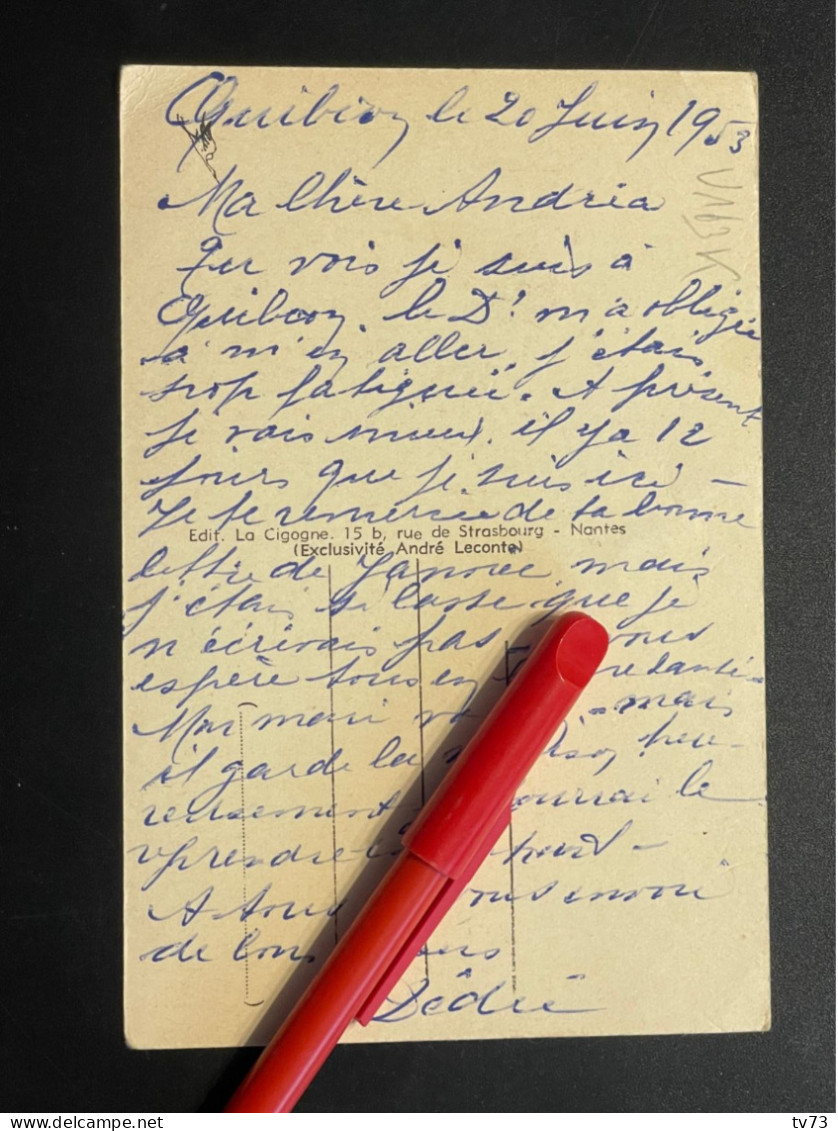 Quiberon le 20 Juin 1953
Ma Chère Andréa
Tu vois je suis à
Quiberon. le Dr m'a obligée
à m'en aller, j'étais
trop fatiguée. A présent
je vais mieux, il y a 12
jours que je suis ici -
Je te remercie de ta bonne
Edit. La Cigogne. 15 b, rue de Strasbourg - Nantes
(Exclusivité André Leconte)
lettre de Janvier mais
j'étais si lasse que je
n'écrivais pas
espère tous en santé -
Mon mari mais
il garde la heu-
reusement pourrai le
A tous envoi
de
Dédé
tv73